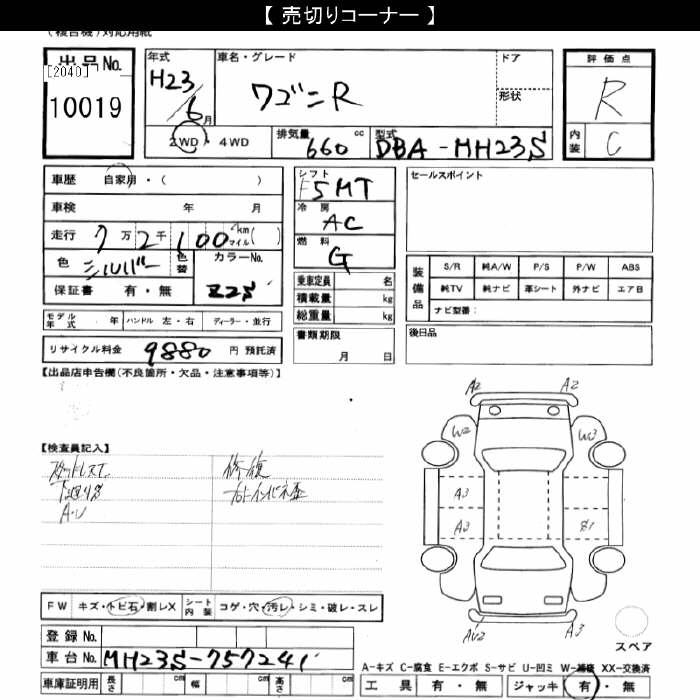 【 売切りコーナー 】
出品No.
[2040]
10019
年式
H23/6月
車名・グレード
ワゴンR
ドア
形状
評価点
R
内装
C
2WD・4WD
排気量
660 cc
型式
DBA-MH23S
車歴 自家用・( )
車検 年 月
走行 7万2千100 km マイル( )
色 シルバー 色替 カラーNo.
Z2S
保証書 有・無
モデル年式 年 ハンドル 左・右 ディーラー・並行
リサイクル料金 9880 円 預託済
シフト
F5MT
冷房
AC
燃料
G
乗車定員 名
積載量 kg
総重量 kg
書類期限
月 日
セールスポイント
装備品
S/R 純A/W P/S P/W ABS
純TV 純ナビ 革シート 外ナビ エアB
ナビ型番:
後日品
【出品店申告欄(不良箇所・欠品・注意事項等)】
【検査員記入】
修復
A・U
A2 A2
W2 W3
A3
A3 S1
AU2 A3
スペア
FW キズ・トビ石・割レX シート内装 コゲ・穴・汚レ・シミ・破レ・スレ
登録No.
車台No. MH23S-757241
車庫証明用 長さ cm 幅 cm 高さ cm
A-キズ C-腐食 E-エクボ S-サビ U-凹ミ W-補修 XX-交換済
工具 有・無 ジャッキ 有・無